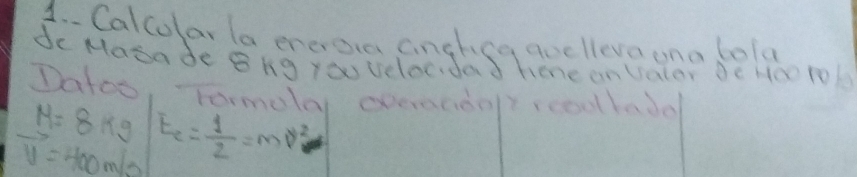 1.- Calcular la energia cinetica que lleva una bola
de Masa de 8 Kg y su velocidad tiene un valor de 400 m/s
Datos Formula operación resultado
M = 8 Kg Ec = 1/2 = mv²
V = 400 m/s